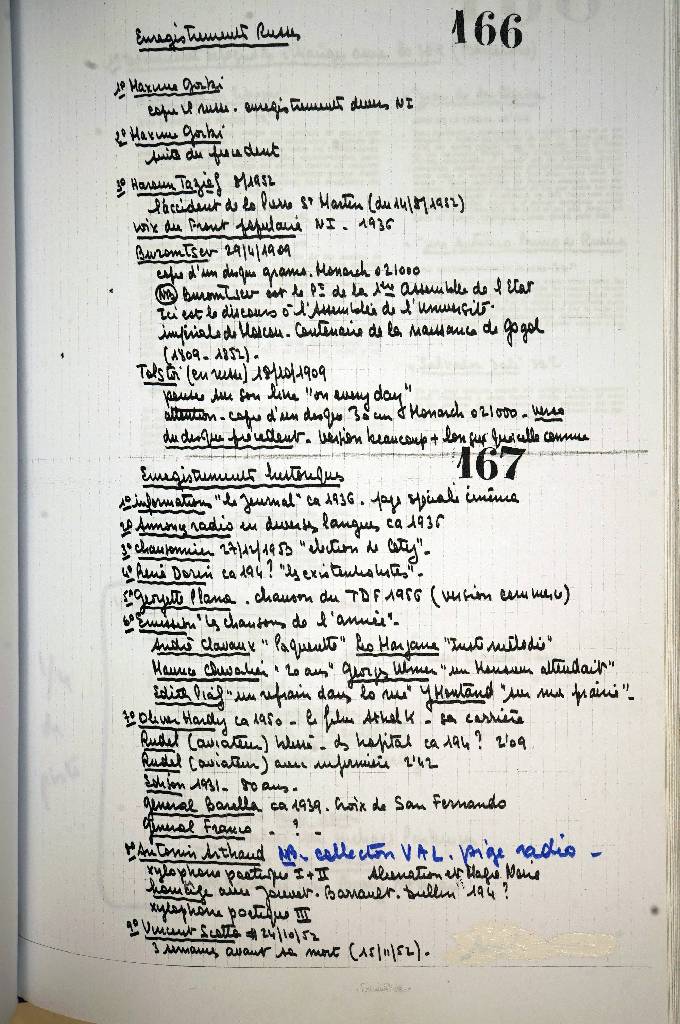 Enregistrements Russes
166
1º Maxime Gorki
copie 78 russe. enregistrements divers NI
2º Maxime Gorki
suite du précédent
3º Haroun Tazief 8/1952
l'accident de la Pierre St Martin (du 14/8/1952)
voix du Front populaire NI - 1936
Buromtsev 29/4/1909
copie d'un disque gramo. Monarch 021000
NB Buromtsev est le Pt de la 1ère Assemblée de l'Etat
Ici est le discours à l'Assemblée de l'Université
impériale de Moscou. Centenaire de la naissance de Gogol
(1809 - 1852).
Tolstoi (en russe) 18/10/1909
pensée sur son livre "on every day"
attention - copie d'un disque 30 cm Monarch 021000 - verso
du disque précédent - version beaucoup + longue que celle connue
167
Enregistrements historiques
1º informations "le Journal" ca 1936. page spéciale cinéma
2º Annonces radio en diverses langues ca 1935
3º chansonnier 27/12/1953 "élection de Coty" -
4º René Dorin ca 194? "les existentialistes" -
5º Georgette Plana. chanson du TDF 1956 (version commerce)
6º Emission "les chansons de l'année" -
André Claveau "Paquerette" Léo Marjane "Inst mélodie"
Maurice Chevalier "20 ans" Georges Ulmer "un Monsieur attendait"
Edith Piaf "un refrain dans la rue" Y Montand "dans ma prairie" -
7º Oliver Hardy ca 1950 - le film - sa carrière
Rudel (aviateur) blessé - ds hopital ca 194? 2'09
Rudel (aviateur) avec infirmière 2'42
Edison 1931 - 80 ans -
général Barella ca 1939. Croix de San Fernando
général Franco - ? -
8º Antonin Arthaud NB - collection VAL. pige radio -
xylophonie poétique I + II Aliénation et Magie Noire
hommage avec Jouvet - Barrault - Dullin 194?
xylophonie poétique III
9º Vincent Scotto 24/10/52
3 semaines avant sa mort (15/11/52).